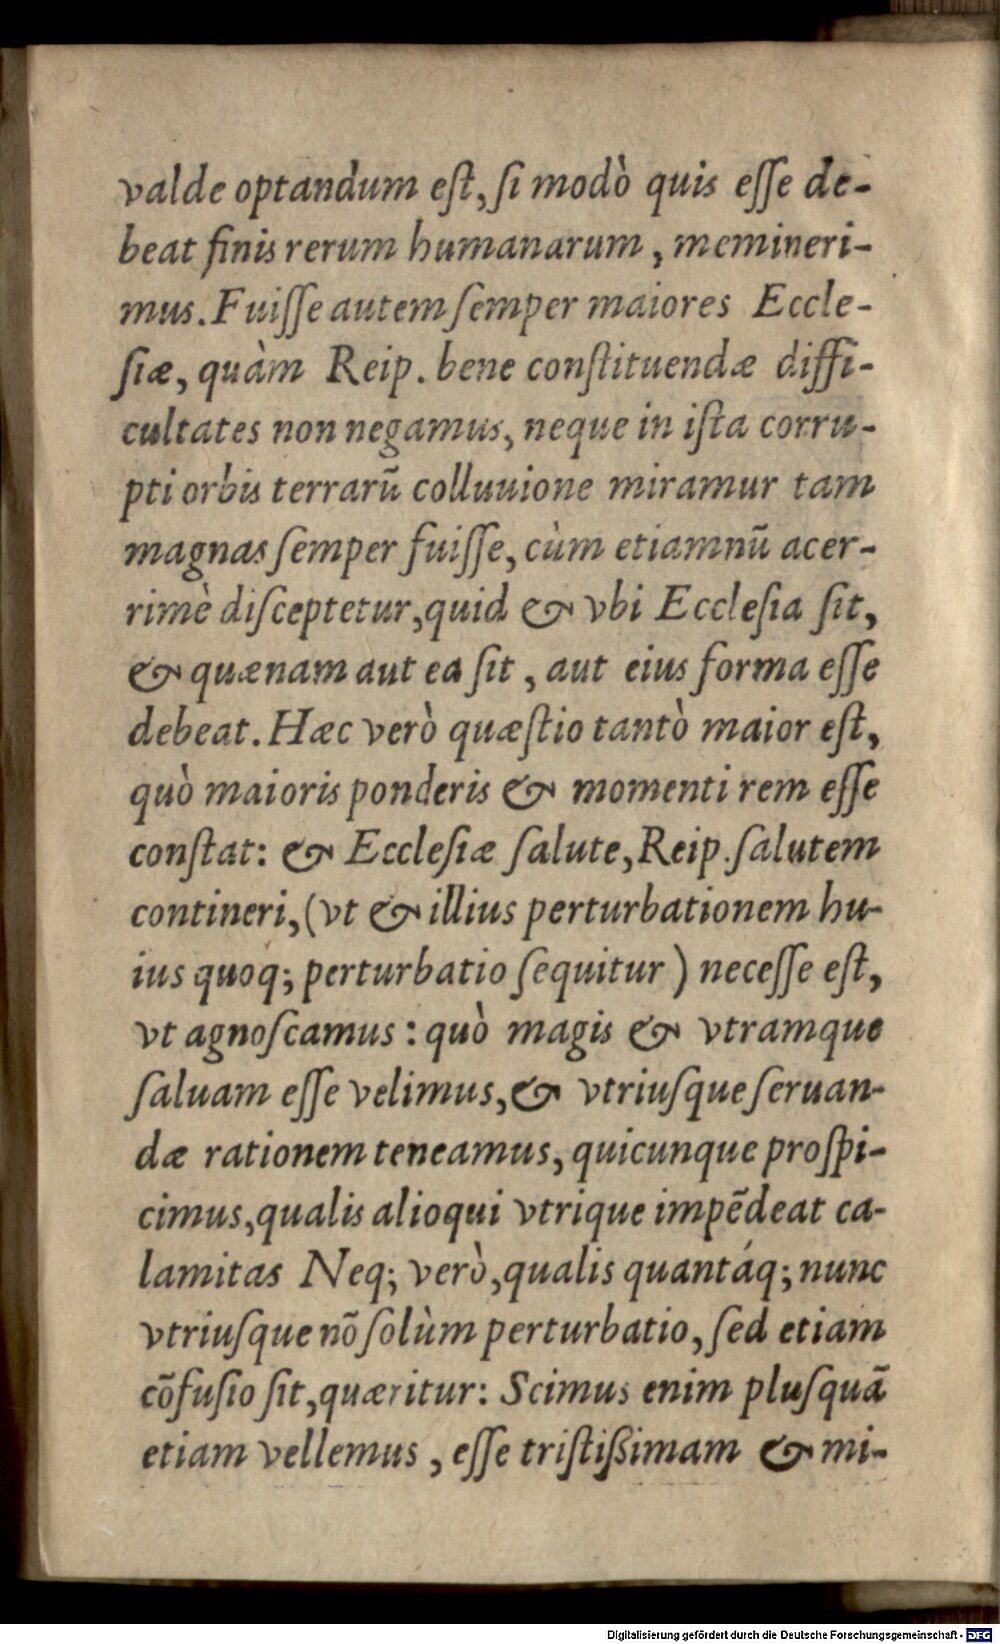 valde optandum eſt, ſi modò quis eſſe de-
beat finis rerum humanarum, memineri-
mus. Fuiſſe autem ſemper maiores Eccle-
ſiæ, quàm Reip. bene conſtituendæ diffi-
cultates non negamus, neque in iſta corru-
pti orbis terrarū colluuione miramur tam
magnas ſemper fuiſſe, cùm etiamnū acer-
rimè diſceptetur, quid & vbi Eccleſia ſit,
& quænam aut ea ſit, aut eius forma eſſe
debeat. Hæc verò quæſtio tantò maior eſt,
quò maioris ponderis & momenti rem eſſe
conſtat: & Eccleſiæ ſalute, Reip. ſalutem
contineri, (vt & illius perturbationem hu-
ius quoq; perturbatio ſequitur) neceſſe eſt,
vt agnoſcamus: quò magis & vtramque
ſaluam eſſe velimus, & vtriuſque ſeruan-
dæ rationem teneamus, quicunque proſpi-
cimus, qualis alioqui vtrique impēdeat ca-
lamitas Neq; verò, qualis quantáq; nunc
vtriuſque nō ſolùm perturbatio, ſed etiam
cōfuſio ſit, quæritur: Scimus enim pluſquā
etiam vellemus, eſſe triſtißimam & mi-
Digitalisierung gefördert durch die Deutsche Forschungsgemeinschaft - DFG